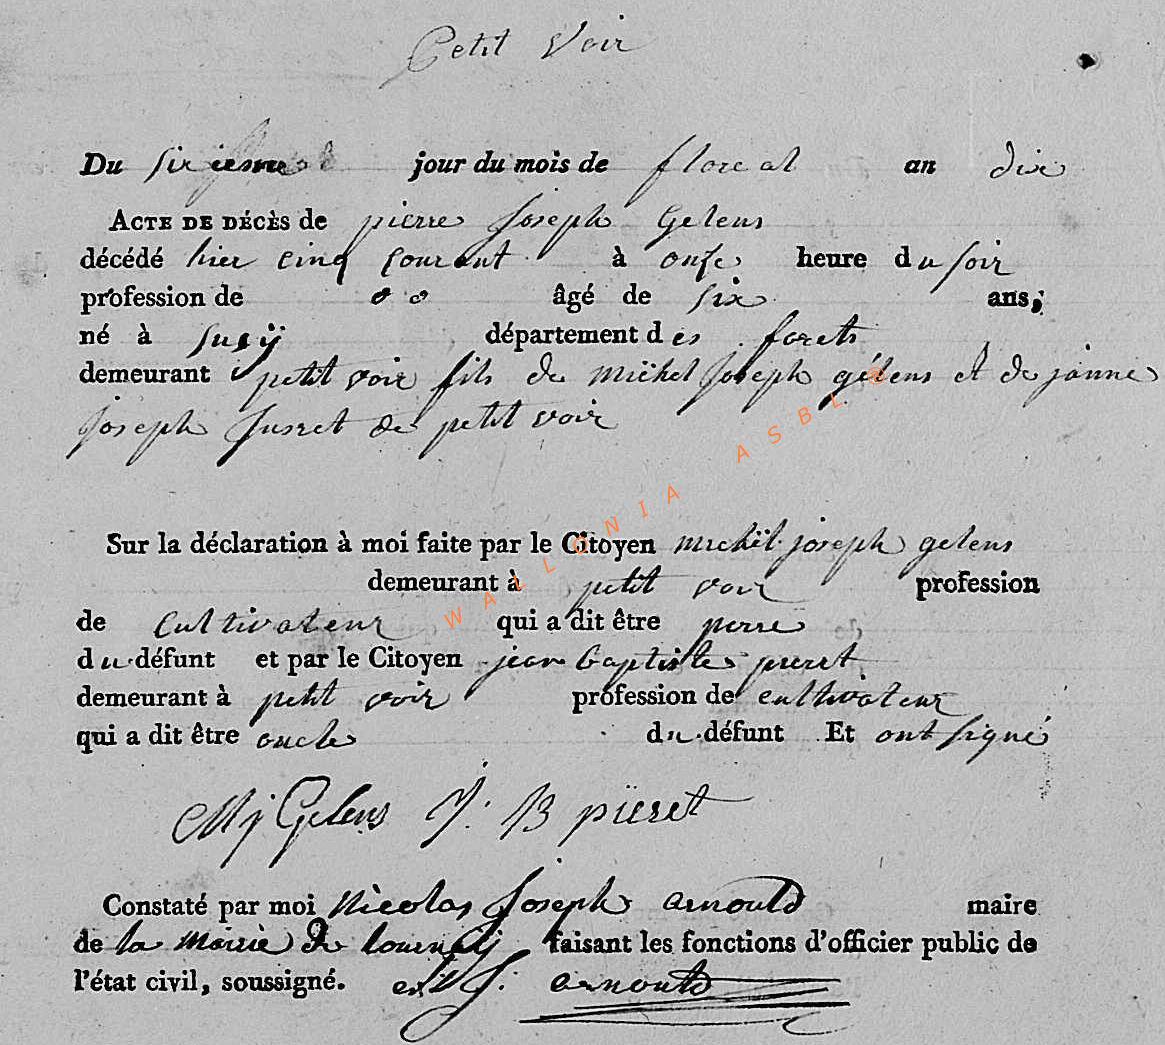 Petit Voir
Du sixieme jour du mois de floreal an dix
ACTE DE DÉCÈS de pierre Joseph Gelens
décédé hier cinq courant à onse heure du soir
profession de âgé de six ans,
né à département des forets
demeurant petit voir fils de Michel Joseph gélens et de janne
joseph de petit voir
Sur la déclaration à moi faite par le Citoyen michel joseph gelens
demeurant à petit voir profession
de Cultivateur qui a dit être perre
du défunt et par le Citoyen jean baptiste pierret
demeurant à petit voir profession de cultivateur
qui a dit être oncle du défunt Et ont signé
Mj Gelens J: B pieret
Constaté par moi Nicolas Joseph arnould maire
de la Mairie De tournay faisant les fonctions d'officier public de
l'état civil, soussigné. J. arnould
WALLONIA ASBL ©